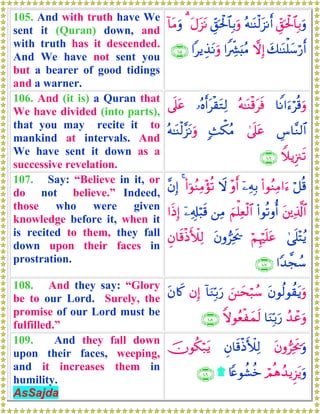 105. And with truth have We
sent it (Quran) down, and
with truth has it descended.
And We have not sent you
but a bearer of good tidings
and a warner.
وَبِٱلْحَقِّ أَنزَلْنَـٰهُ وَبِٱلْحَقِّ نَزَلَ ۗ وَمَآ
أَرْسَلْنَـٰكَ إِلَّا مُبَشِّرًا وَنَذِيرًا ﴿١٠٥﴾
106. And (it is) a Quran that
We have divided (into parts),
that you may recite it to
mankind at intervals. And
We have sent it down as a
successive revelation.
وَقُرْءَانًا فَرَقْنَـٰهُ لِتَقْرَأَهُۥ عَلَى
ٱلنَّاسِ عَلَىٰ مُكْثٍ وَنَزَّلْنَـٰهُ
تَنزِيلًا ﴿١٠٦﴾
107. Say: “Believe in it, or
do not believe.” Indeed,
those who were given
knowledge before it, when it
is recited to them, they fall
down upon their faces in
prostration.
قُلْ ءَامِنُوا۟ بِهِۦٓ أَوْ لَا تُؤْمِنُوٓا۟ ۚ إِنَّ
ٱلَّذِينَ أُوتُوا۟ ٱلْعِلْمَ مِن قَبْلِهِۦٓ إِذَا
يُتْلَىٰ عَلَيْهِمْ يَخِرُّونَ لِلْأَذْقَانِ
سُجَّدًا ﴿١٠٧﴾
108. And they say: “Glory
be to our Lord. Surely, the
promise of our Lord must be
fulfilled.”
وَيَقُولُونَ سُبْحَـٰنَ رَبِّنَآ إِن كَانَ
وَعْدُ رَبِّنَا لَمَفْعُولًا ﴿١٠٨﴾
109. And they fall down
upon their faces, weeping,
and it increases them in
humility.
AsSajda
وَيَخِرُّونَ لِلْأَذْقَانِ يَبْكُونَ
وَيَزِيدُهُمْ خُشُوعًا ۩ ﴿١٠٩﴾